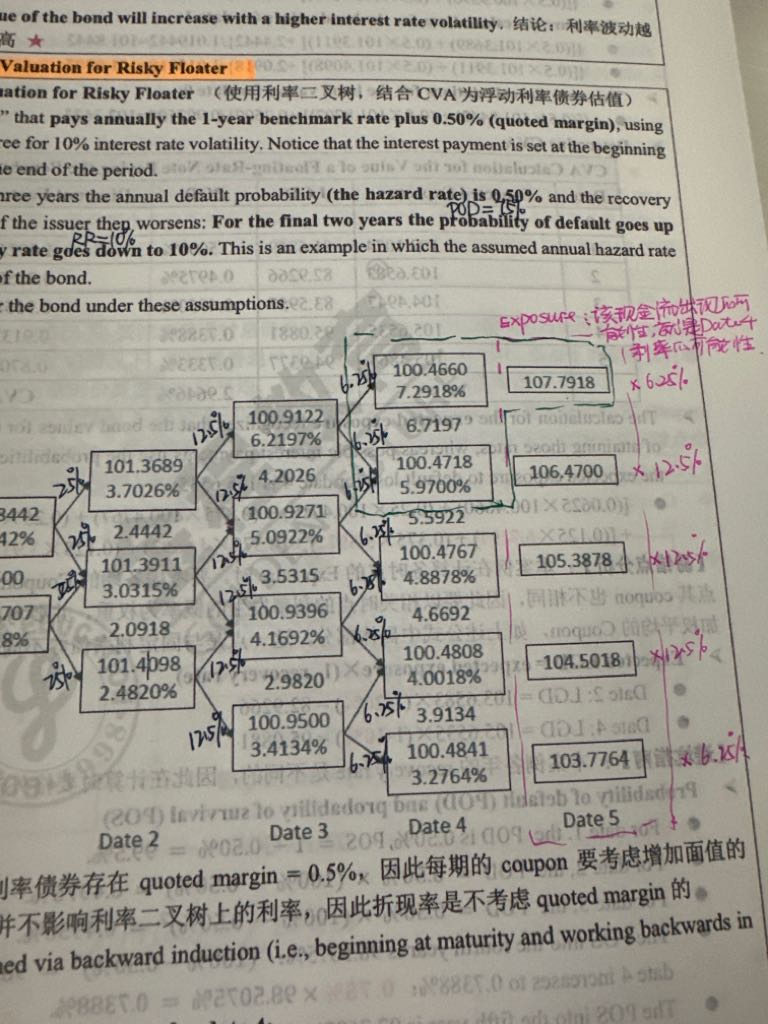 ue of the bond will increase with a higher interest rate volatility. 结论：利率波动越
高 ★
Valuation for Risky Floater
uation for Risky Floater （使用利率二叉树，结合 CVA 为浮动利率债券估值）
” that pays annually the 1-year benchmark rate plus 0.50% (quoted margin), using
ree for 10% interest rate volatility. Notice that the interest payment is set at the beginning
he end of the period.
hree years the annual default probability (the hazard rate) is 0.50% and the recovery
POD=15%
f the issuer then worsens: For the final two years the probability of default goes up
RR=10%
y rate goes down to 10%. This is an example in which the assumed annual hazard rate
of the bond.
r the bond under these assumptions.
exposure：该现金流出现的可
能性，就是Date4
利率的可能性.
6.25% 100.4660 107.7918 ×6.25%
7.2918%
12.5% 100.9122 6.25% 6.7197
6.2197%
25% 101.3689 6.25% 100.4718 106.4700 ×12.5%
3.7026% 4.2026 5.9700%
12.5% 100.9271 6.25% 5.5922
3442 25% 2.4442 5.0922% 100.4767 105.3878 ×12.5%
42% 12.5% 6.25% 4.8878%
101.3911 3.5315
00 3.0315% 12.5% 100.9396 6.25% 4.6692
4.1692% 100.4808 104.5018 ×12.5%
707 2.0918 4.0018%
8% 25% 101.4098 12.5% 2.9820 6.25% 3.9134
2.4820% 12.5% 100.9500 6.25% 100.4841 103.7764 ×6.25%
3.4134% 3.2764%
Date 2 Date 3 Date 4 Date 5
利率债券存在 quoted margin = 0.5%，因此每期的 coupon 要考虑增加面值的
并不影响利率二叉树上的利率，因此折现率是不考虑 quoted margin 的
ned via backward induction (i.e., beginning at maturity and working backwards in